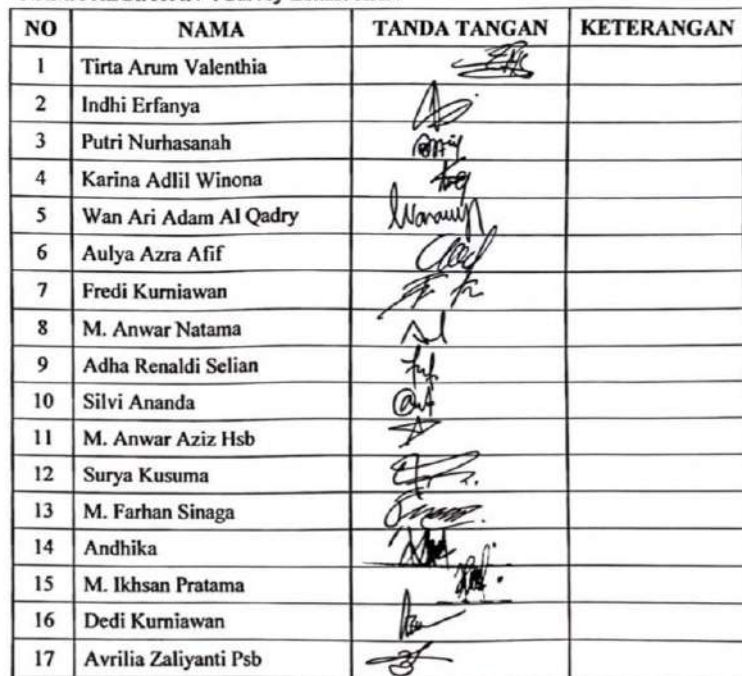 NO NAMA TANDA TANGAN KETERANGAN
1 Tirta Arum Valenthia
2 Indhi Erfanya
3 Putri Nurhasanah
4 Karina Adlil Winona
5 Wan Ari Adam Al Qadry
6 Aulya Azra Afif
7 Fredi Kurniawan
8 M. Anwar Natama
9 Adha Renaldi Selian
10 Silvi Ananda
11 M. Anwar Aziz Hsb
12 Surya Kusuma
13 M. Farhan Sinaga
14 Andhika
15 M. Ikhsan Pratama
16 Dedi Kurniawan
17 Avrilia Zaliyanti Psb